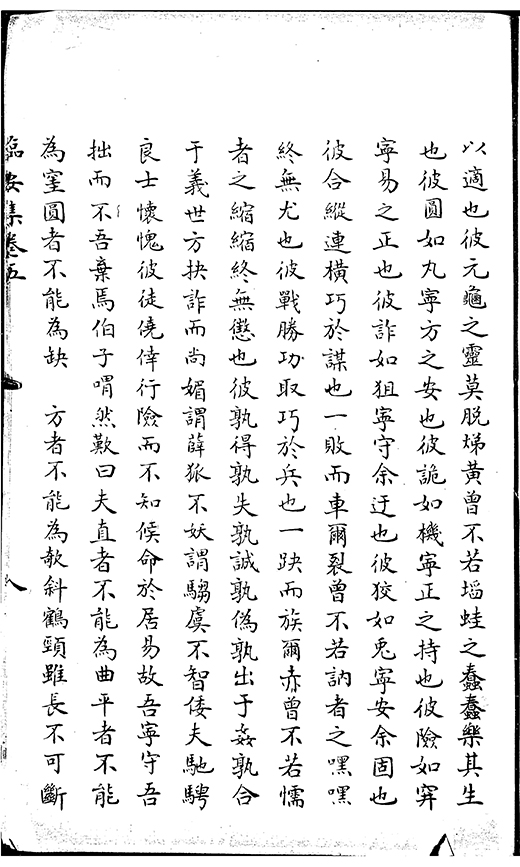 以適也彼元龜之靈莫脫焬黄曾不若埳蛙之蠢蠢樂其生
也彼圓如丸寧方之安也彼詭如機寧正之持也彼險如穽
寧易之正也彼詐如狙寧守余迂也彼狡如兎寧安余固也
彼合縱連橫巧於謀也一敗而車爾裂曾不若訥者之嘿嘿
終無尤也彼戰勝功取巧於兵也一跌而族爾赤曾不若懦
者之縮縮終無懲也彼孰得孰失孰誠孰偽孰出于姦孰合
于義世方抉詐而尚媚謂薛狐不妖謂騶虞不智倭夫馳騁
良士懷愧彼徒僥倖行險而不知俟命於居易故吾寧守吾
拙而不吾棄焉伯子喟然歎曰夫直者不能為曲平者不能
為窪圓者不能為缺 方者不能為欹斜鶴頸雖長不可斷
臨安集卷五 八